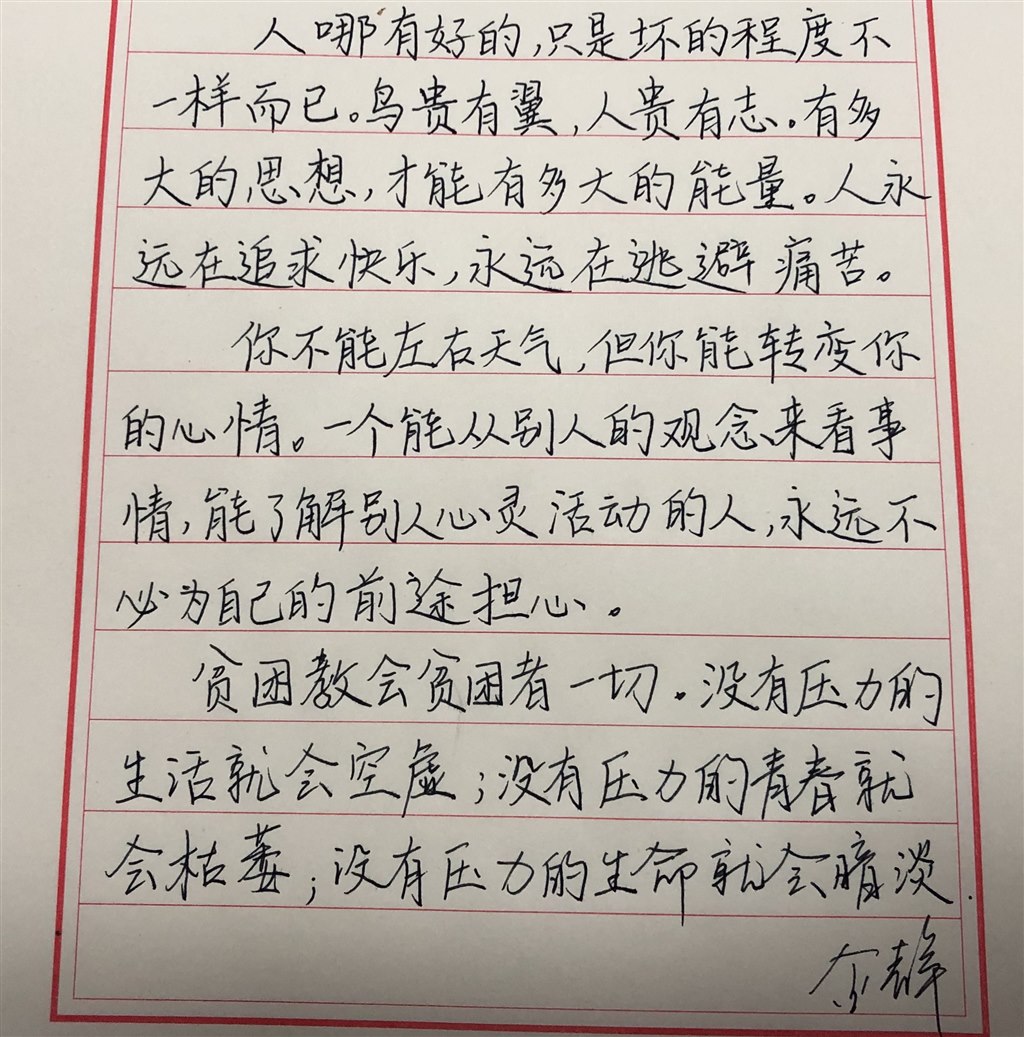 人哪有好的,只是坏的程度不
一样而已。鸟贵有翼,人贵有志.有多
大的思想,才能有多大的能量。人永
远在追求快乐,永远在逃避痛苦。
你不能左右天气,但你能转变你
的心情。一个能从别人的观念来看事
情,能了解别人心灵活动的人,永远不
必为自己的前途担心。
贫困教会贫困者一切.没有压力的
生活就会空虚;没有压力的青春就
会枯萎;没有压力的生命就会暗淡.